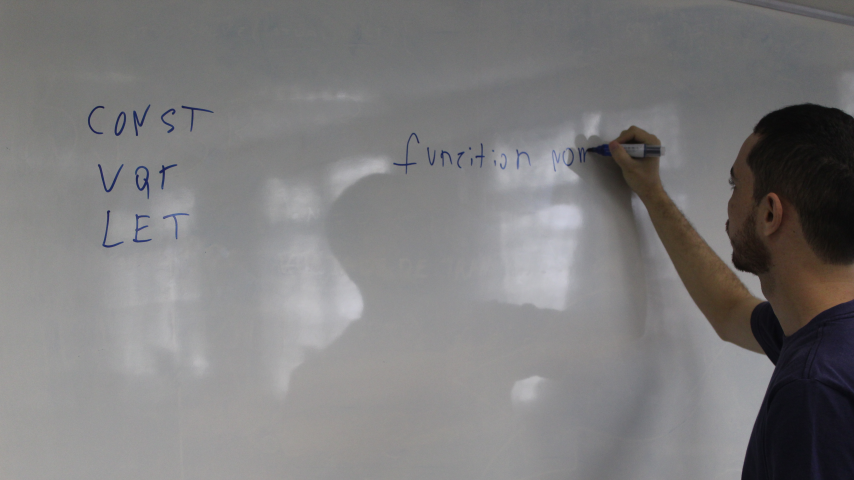 CONST
var
LET
funcition nom